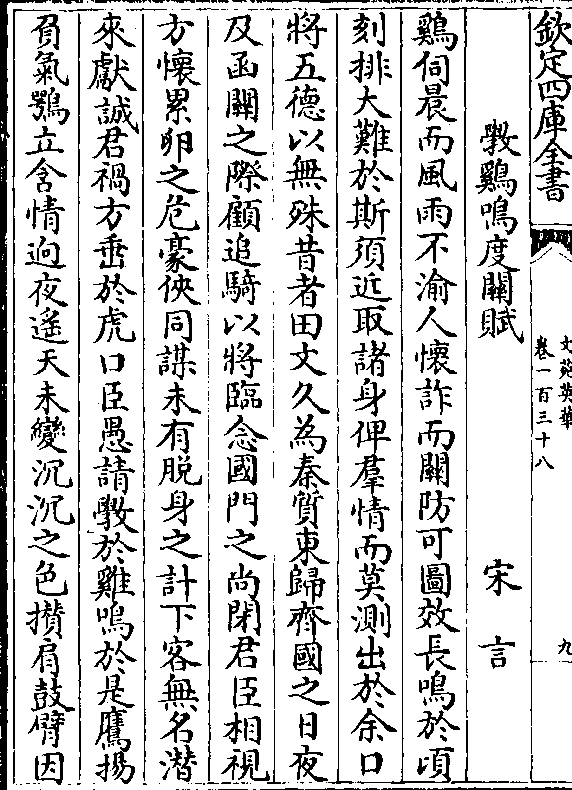 欽定四庫全書
文苑英華
卷一百三十八
九
斆鷄鳴度關賦
宋言
鷄伺晨而風雨不渝人懷詐而關防可圖效長鳴於頃
刻排大難於斯須近取諸身俾羣情而莫測出於余口
將五德以無殊昔者田文久為秦質東歸齊國之日夜
及函關之際顧追騎以將臨念國門之尚閉君臣相視
方懷累卵之危豪俠同謀未有脫身之計下客無名潛
來獻誠君禍方垂於虎口臣愚請斆於雞鳴於是鷹揚
負氣鶚立含情逈夜遙天未變沉沉之色攢肩鼓臂因